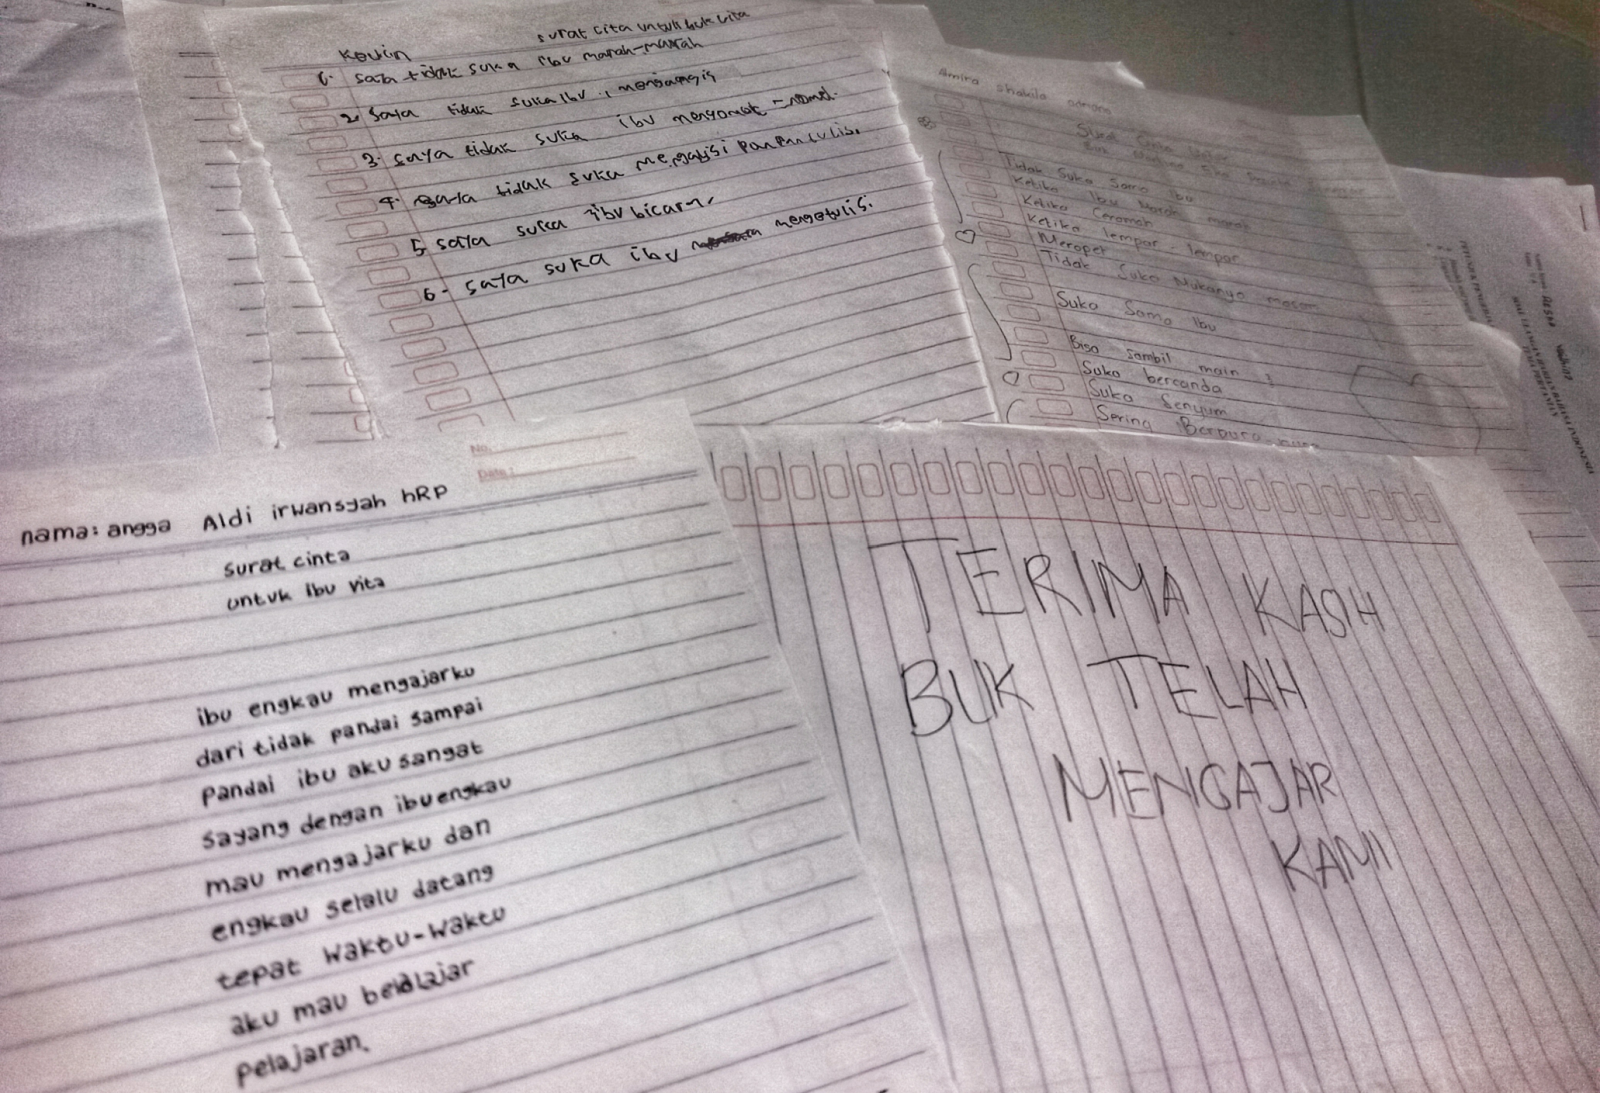 Kevin
surat cita untuk buk vita
1. saya tidak suka ibu marah-marah
2. saya tidak suka ibu
3. saya tidak suka ibu mengomel-ngomel.
4. saya tidak suka mengapisi papan tulis.
5 saya suka ibu bicara
6. saya suka ibu mengetulis.
Amira Shakila
Tidak Suka Sama Ibu
Ketika Ibu Marah marah
Ketika Ceramah
Ketika lempar lempar
Merepet
Tidak Suka Mukanya masam
Suka Sama Ibu
Bisa sambil main
Suka bercanda
Suka Senyum
Sering
No.
Date:
nama: angga Aldi irwansyah hRP
surat cinta
untuk ibu vita
ibu engkau mengajarku
dari tidak pandai sampai
pandai ibu aku sangat
sayang dengan ibu engkau
mau mengajarku dan
engkau selalu datang
tepat waktu-waktu
aku mau belalajar
pelajaran.
TERIMA KASIH
BUK TELAH
MENGAJAR
KAMI